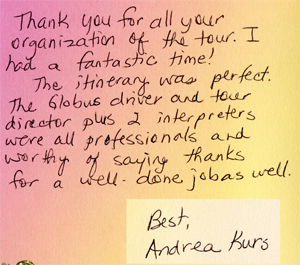 Thank you for all your
organization of the tour. I
had a fantastic time!
The itinerary was perfect.
The Globus driver and tour
director plus 2 interpreters
were all professionals and
worthy of saying thanks
for a well-done job as well.
Best,
Andrea Kurs